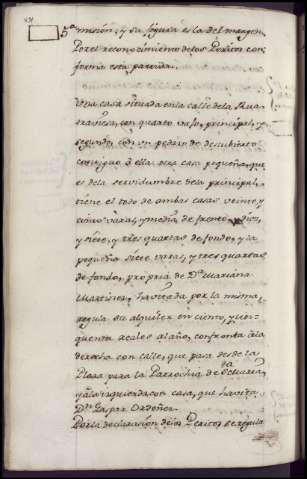 5ª misión, y su figura es la del margen.
Por el reconocimiento de los Peritos con-
forma esta partida.
Una casa situada en la calle de la Rua
traviesa, con quarto vajo, principal, y
segundo, con un pedazo de descubierto
contiguo à ella otra casa pequeña, que
es de la servidumbre de la principal,
tiene el todo de ambas casas veinte y
cinco varas, y media de frente, diez,
y siete, y tres quartas de fondo, y la
pequeña siete varas, y tres quartas
de fondo, propria de Dª Mariana
Martinez, havitada por la misma,
regula su alquiler en ciento, y cin-
quenta reales al año, confronta à la
derecha con calle, que pasa desde la
Plaza para la Parrochia de Sta Maria,
y à la izquierda con casa, que havita
Dn Gaspar Ordoñez.
Por la declaracion de los Peritos se regula